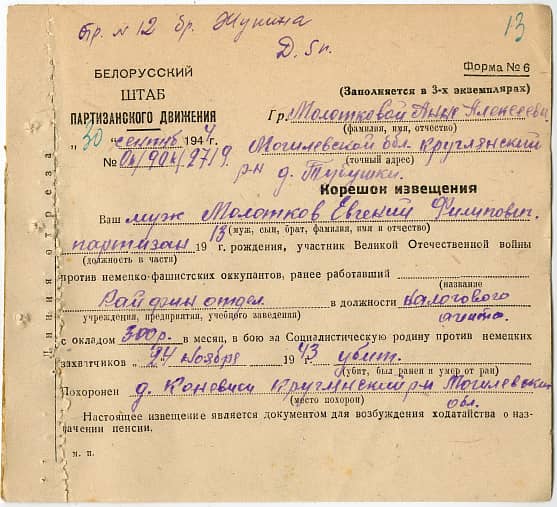 Гр. № 12 бр. Жунина 13
Д. 5 п.
Форма № 6
БЕЛОРУССКИЙ
ШТАБ
ПАРТИЗАНСКОГО ДВИЖЕНИЯ
„30 сентяб 1944
№
(Заполняется в 3-х экземплярах)
Гр. Молотковой Анне Алексеевн
(фамилия, имя, отчество)
Могилевской обл. Круглянский
(точный адрес)
р-н д. Тубушки
Корешок извещения
Ваш муж Молотков Евгений Филипович.
(муж, сын, брат, фамилия, имя и отчество)
партизан 1913 г. рождения, участник Великой Отечественной войны
(должность в части)
против немецко-фашистских оккупантов, ранее работавший
(название
Райфинотдел в должности налогового
учреждения, предприятия, учебного заведения)
агента.
с окладом 300 р. в месяц, в бою за Социалистическую родину против немецких
захватчиков 24 ноября 1943 убит.
(убит, был ранен и умер от ран)
Похоронен д. Круглянский р-н Могилевской
(место похорон)
обл.
Настоящее извещение является документом для возбуждения ходатайства о наз-
начении пенсии.
м. п.
Линия отреза